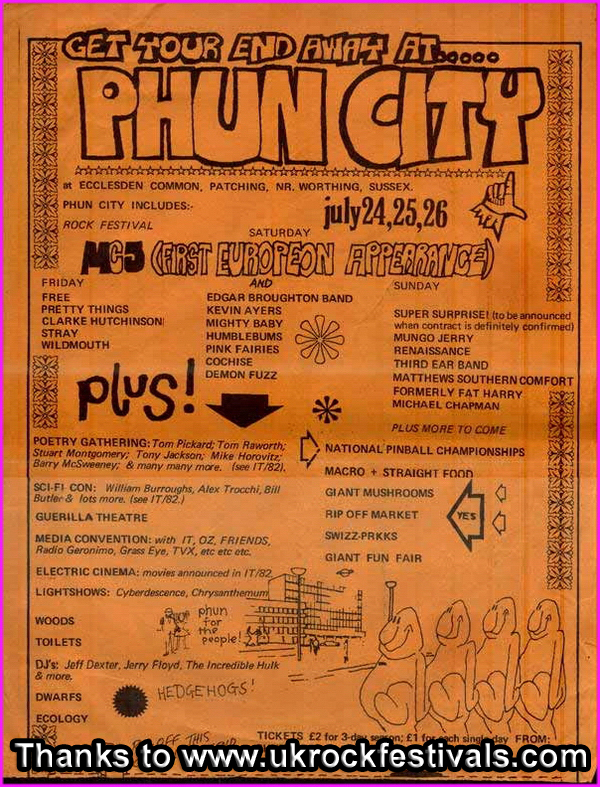 GET YOUR END AWAY AT.....
PHUN CITY
at ECCLESDEN COMMON, PATCHING, NR. WORTHING, SUSSEX.
PHUN CITY INCLUDES:-
july 24,25,26
ROCK FESTIVAL
SATURDAY
MC5 (FIRST EUROPEON APPEARANCE)
FRIDAY
FREE
PRETTY THINGS
CLARKE HUTCHINSON
STRAY
WILDMOUTH
AND
EDGAR BROUGHTON BAND
KEVIN AYERS
MIGHTY BABY
HUMBLEBUMS
PINK FAIRIES
COCHISE
DEMON FUZZ
SUNDAY
SUPER SURPRISE! (to be announced
when contract is definitely confirmed)
MUNGO JERRY
RENAISSANCE
THIRD EAR BAND
MATTHEWS SOUTHERN COMFORT
FORMERLY FAT HARRY
MICHAEL CHAPMAN
PLUS MORE TO COME
plus!
POETRY GATHERING: Tom Pickard; Tom Raworth;
Stuart Montgomery; Tony Jackson; Mike Horovitz;
Barry McSweeney; & many many more. (see IT/82).
SCI-FI CON: William Burroughs, Alex Trocchi, Bill
Butler & lots more. (see IT/82.)
GUERILLA THEATRE
MEDIA CONVENTION: with IT, OZ, FRIENDS,
Radio Geronimo, Grass Eye, TVX, etc etc etc.
ELECTRIC CINEMA: movies announced in IT/82
LIGHTSHOWS: Cyberdescence, Chrysanthemum
WOODS
TOILETS
DJ's: Jeff Dexter, Jerry Floyd, The Incredible Hulk
& more.
DWARFS
ECOLOGY
NATIONAL PINBALL CHAMPIONSHIPS
MACRO + STRAIGHT FOOD
GIANT MUSHROOMS
RIP OFF MARKET
SWIZZ-PRKKS
GIANT FUN FAIR
YES
phun
for
the
people!
HEDGEHOGS!
OFF THIS
TICKETS £2 for 3-day season; £1 for each single day FROM:
Thanks to www.ukrockfestivals.com